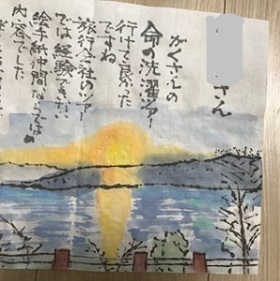 さん
がくさんの
命の洗濯ツアー
行けて良かった
ですね
旅行会社のツアー
では経験できない
絵手紙仲間ならではの
内容でした